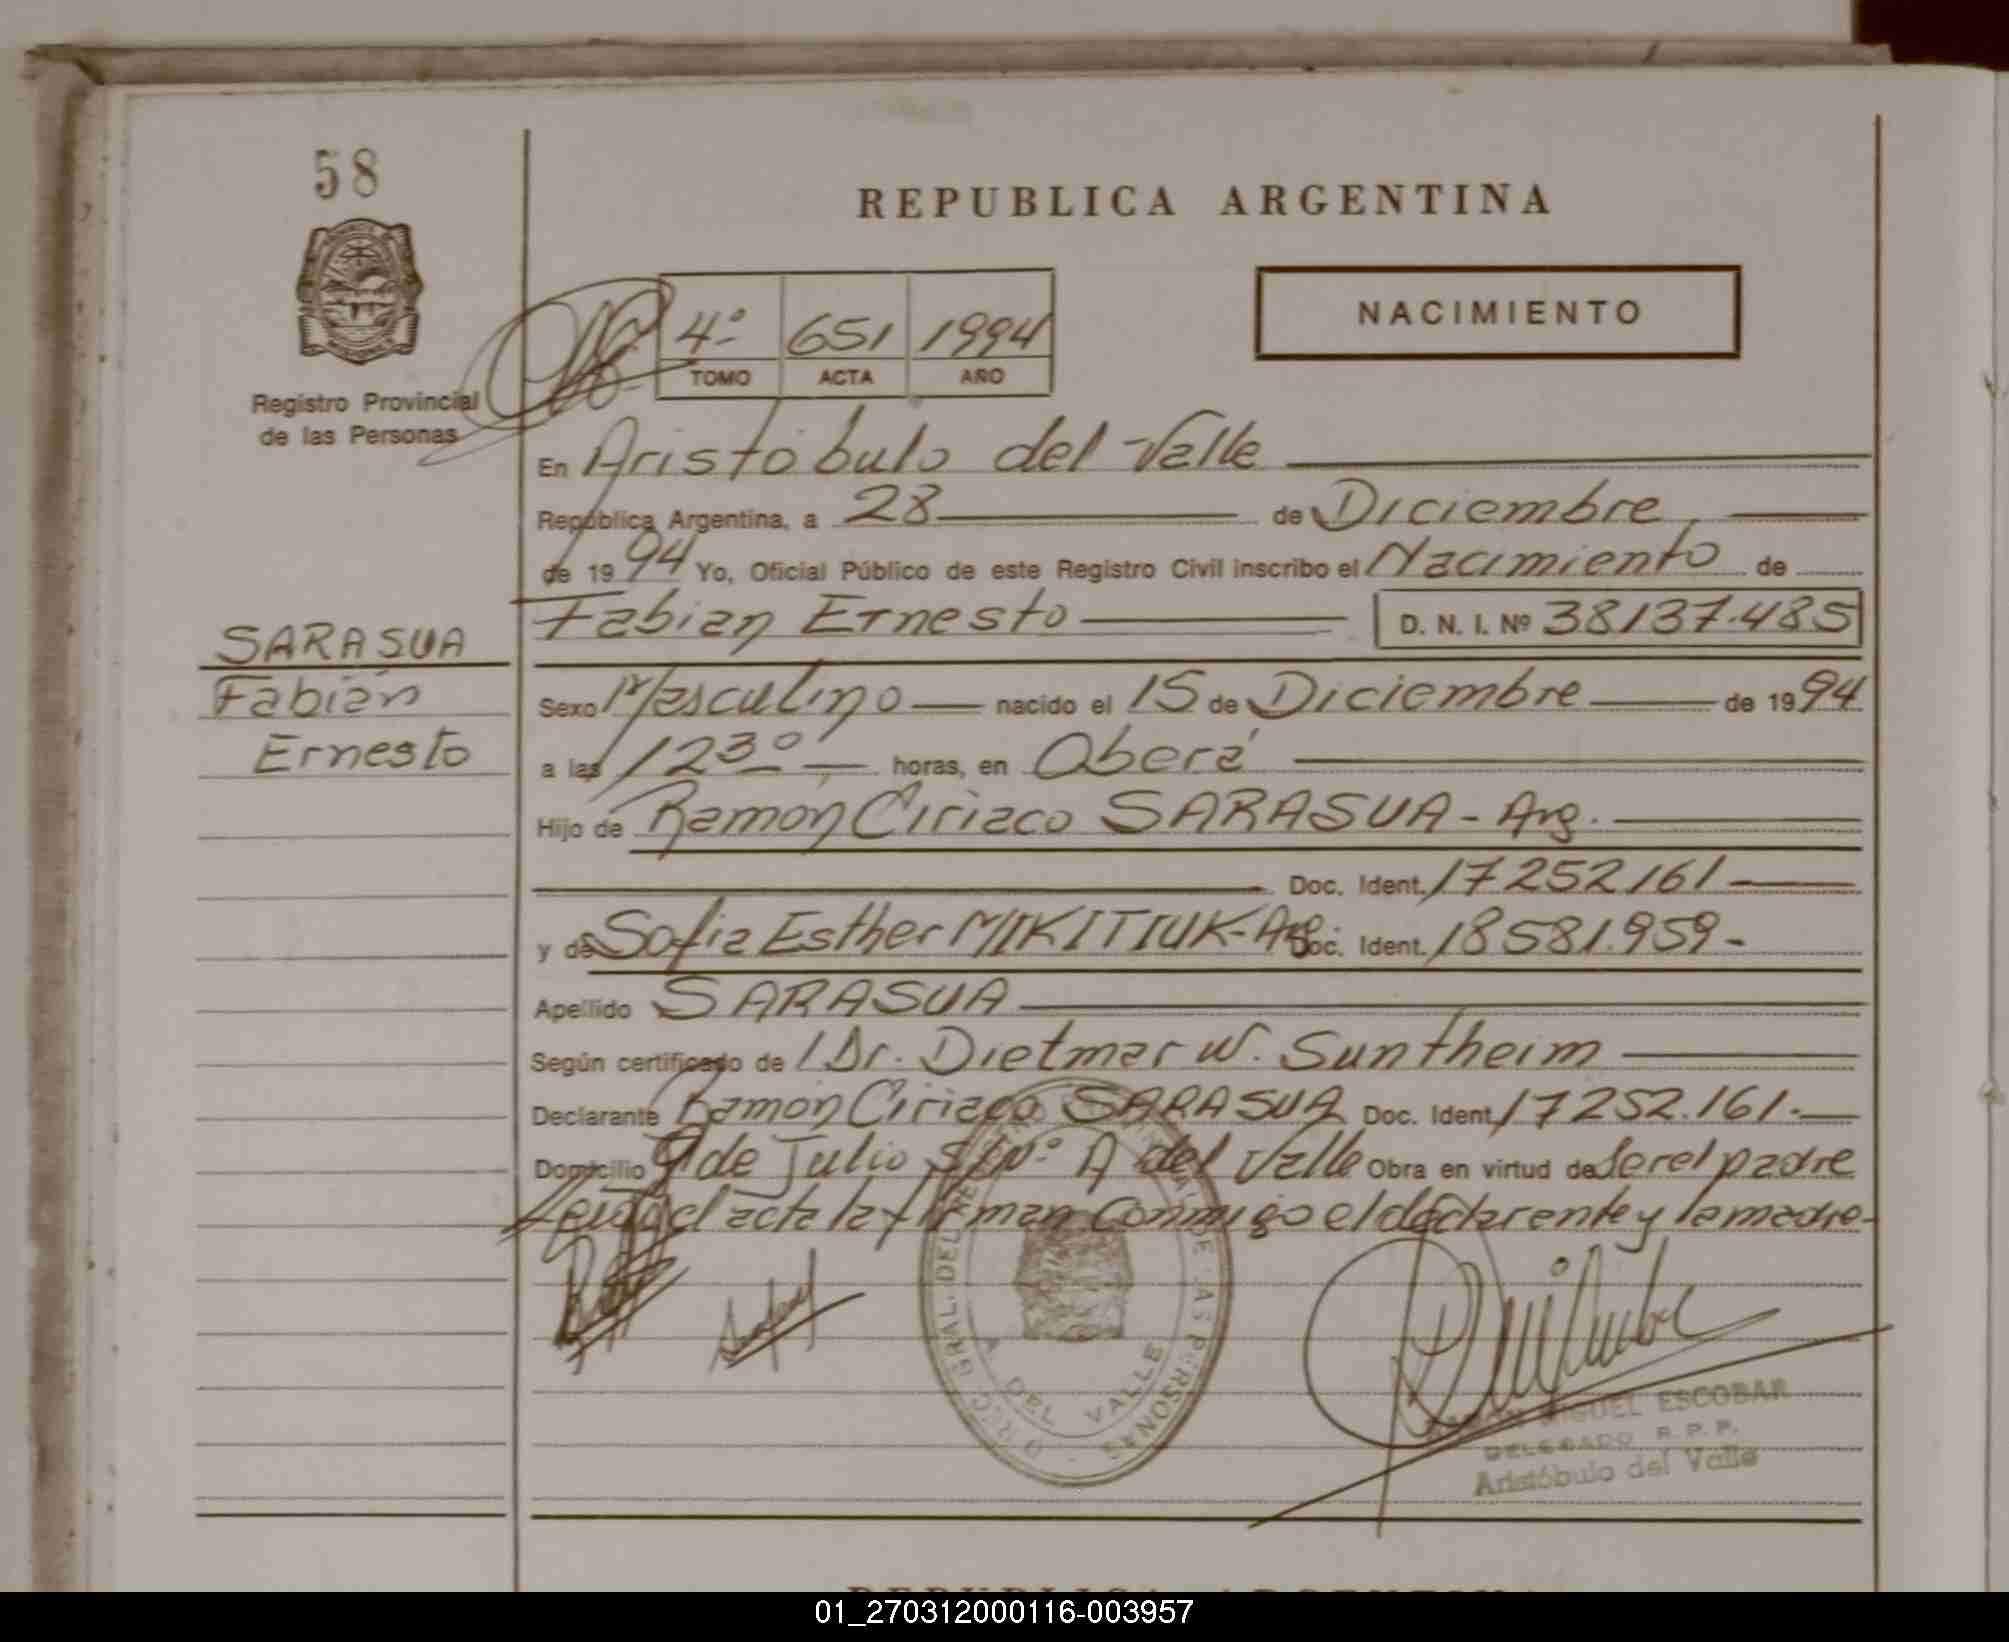 58
REPUBLICA ARGENTINA
NACIMIENTO
4º 651 1994
TOMO ACTA AÑO
Registro Provincial
de las Personas
En Aristóbulo del Valle
República Argentina, a 28 de Diciembre
de 1994 Yo, Oficial Público de este Registro Civil inscribo el Nacimiento de
Fabian Ernesto D. N. I. Nº 38137.485
SARASUA
Fabián
Ernesto
Sexo Masculino nacido el 15 de Diciembre de 1994
a las 12 30 horas, en Oberá
Hijo de Ramón Ciriaco SARASUA - Arg.
Doc. Ident. 17252161
y de Sofia Esther MIKITIUK - Arg Doc. Ident. 18581.959-
Apellido SARASUA
Según certificado de Dr. Dietmar W. Suntheim
Declarante Ramón Ciriaco SARASUA Doc. Ident. 17252.161.
Domicilio 9 de Julio S/Nº A del Valle Obra en virtud de Ser el padre
Leida el acta la firman conmigo el declarante y la madre-
DIRECC. GRAL. DEL REGISTRO PROVINCIAL DE LAS PERSONAS
A. DEL VALLE
RAMON MIGUEL ESCOBAR
DELEGADO R. P. P.
Aristóbulo del Valle
REPUBLICA ARGENTINA
01_270312000116-003957